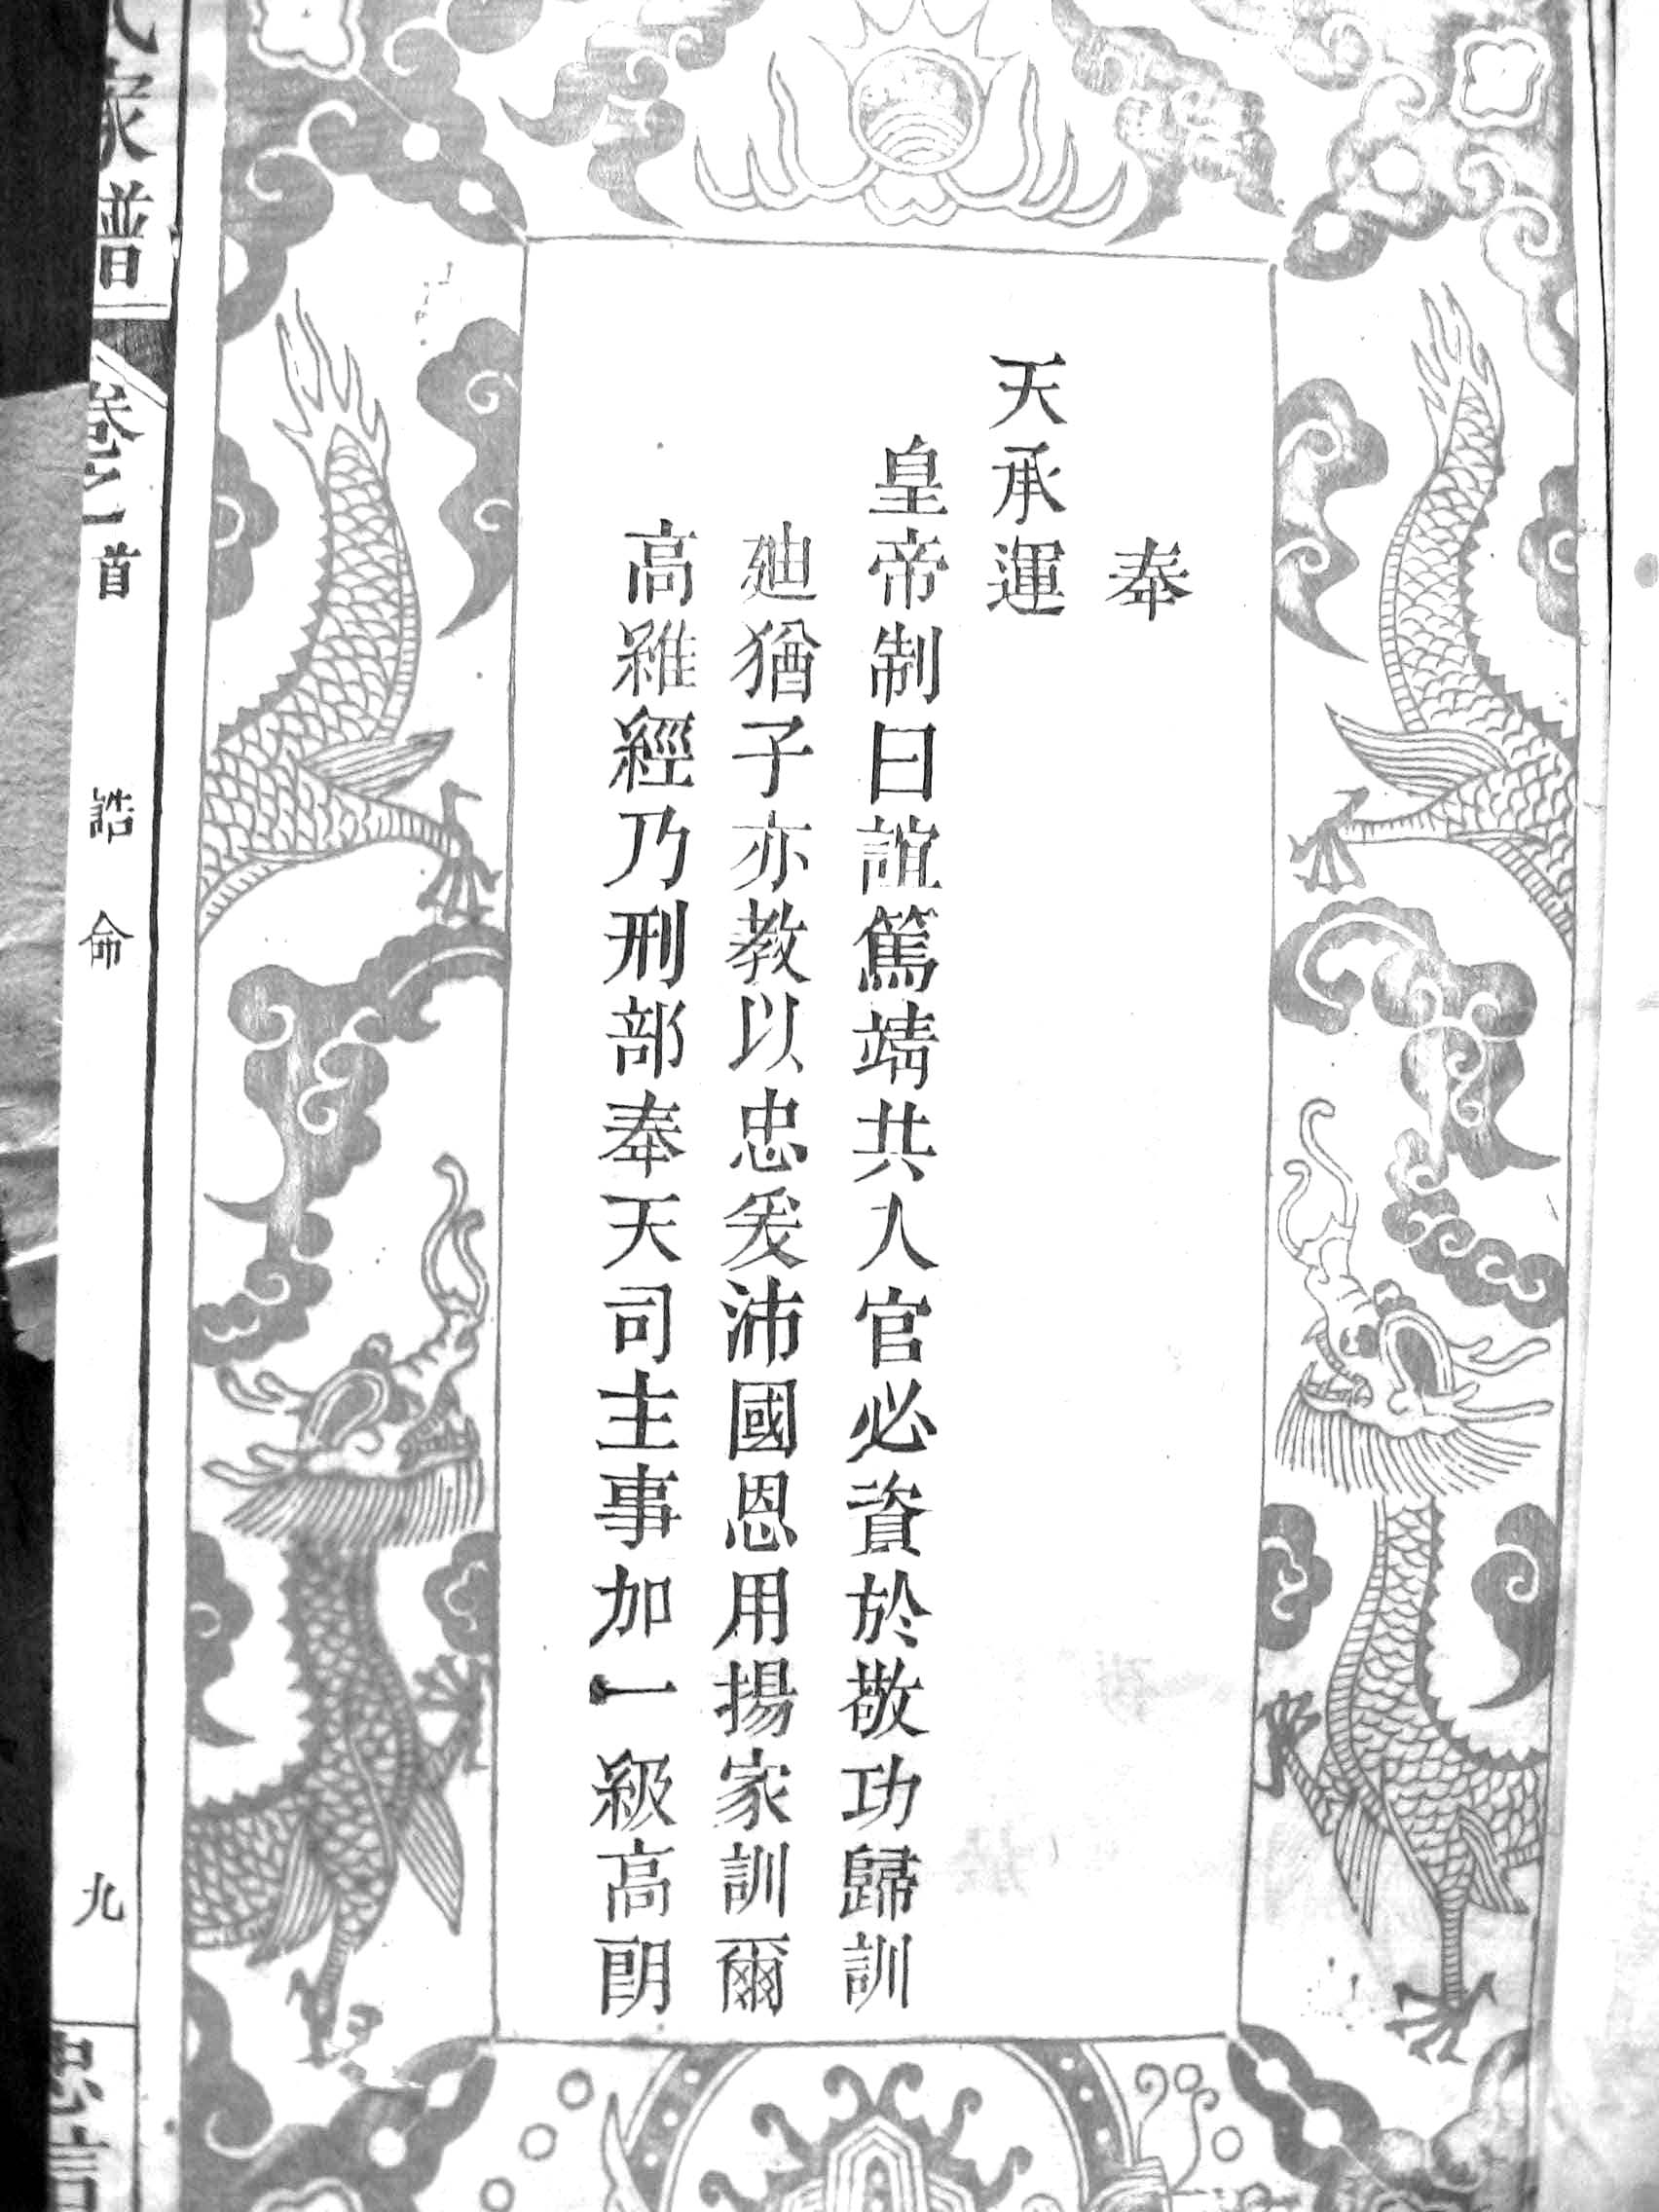 奉
天承運
皇帝制曰誼篤靖共入官必資於敬功歸訓
廸猶子亦教以忠爰沛國恩用揚家訓爾
高維經乃刑部奉天司主事加一級高朗
家譜
卷之首
誥命
九